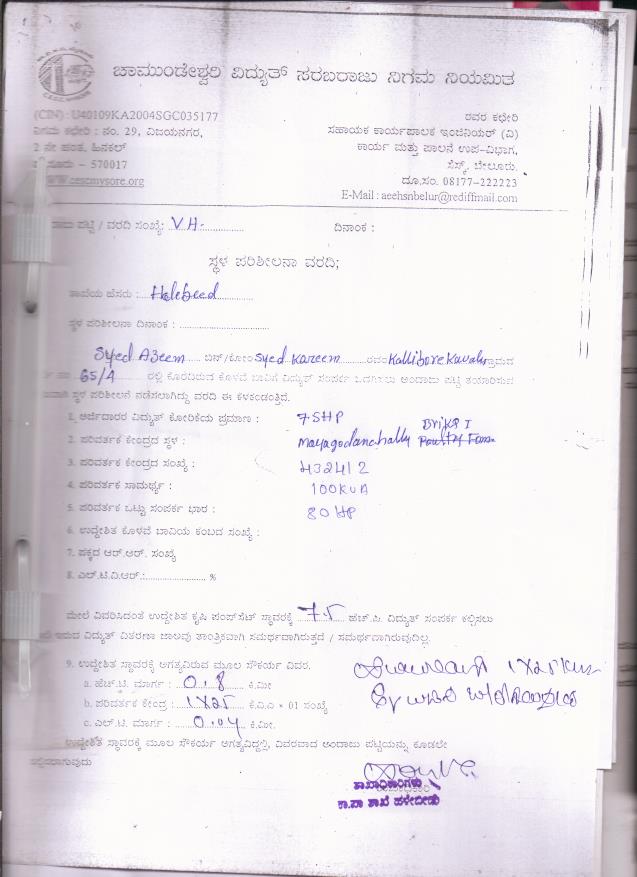 ಚಾಮುಂಡೇಶ್ವರಿ ವಿದ್ಯುತ್ ಸರಬರಾಜು ನಿಗಮ ನಿಯಮಿತ
(CIN) : U40109KA2004SGC035177
ರವರ ಕಛೇರಿ
ನಿಗಮ ಕಛೇರಿ : ನಂ. 29, ವಿಜಯನಗರ,
ಸಹಾಯಕ ಕಾರ್ಯಪಾಲಕ ಇಂಜಿನಿಯರ್ (ವಿ)
2 ನೇ ಹಂತ, ಹಿನಕಲ್
ಕಾರ್ಯ ಮತ್ತು ಪಾಲನೆ ಉಪ-ವಿಭಾಗ,
ಸೂರು – 570017
ಸೆಸ್ಕ್, ಬೇಲೂರು.
www.cescmysore.org
ದೂ.ಸಂ. 08177-222223
E-Mail : aeehsnbelur@rediffmail.com
ದಾಜು ಪಟ್ಟಿ / ವರದಿ ಸಂಖ್ಯೆ: VH-
ದಿನಾಂಕ :
ಸ್ಥಳ ಪರಿಶೀಲನಾ ವರದಿ;
ಶಾಖೆಯ ಹೆಸರು : Halebeed
ಸ್ಥಳ ಪರಿಶೀಲನಾ ದಿನಾಂಕ :
Syed Azeem ಬಿನ್/ಕೋಂ Syed Kareem ರವರ Kallibore Kavalu ಗ್ರಾಮದ
65/A ರಲ್ಲಿ ಕೊರೆದಿರುವ ಕೊಳವೆ ಬಾವಿಗೆ ವಿದ್ಯುತ್ ಸಂಪರ್ಕ ಒದಗಿಸಲು ಅಂದಾಜು ಪಟ್ಟಿ ತಯಾರಿಸುವ
ಸ್ಥಳ ಪರಿಶೀಲನೆ ನಡೆಸಲಾಗಿದ್ದು ವರದಿ ಈ ಕೆಳಕಂಡಂತ್ತಿದೆ.
1. ಅರ್ಜಿದಾರರ ವಿದ್ಯುತ್ ಕೋರಿಕೆಯ ಪ್ರಮಾಣ : 7.5HP
2. ಪರಿವರ್ತಕ ಕೇಂದ್ರದ ಸ್ಥಳ : Mayagodanahally
3. ಪರಿವರ್ತಕ ಕೇಂದ್ರದ ಸಂಖ್ಯೆ : 432412
4. ಪರಿವರ್ತಕ ಸಾಮರ್ಥ್ಯ : 100KVA
5. ಪರಿವರ್ತಕ ಒಟ್ಟು ಸಂಪರ್ಕ ಭಾರ : 80 HP
6. ಉದ್ದೇಶಿತ ಕೊಳವೆ ಬಾವಿಯ ಕಂಬದ ಸಂಖ್ಯೆ :
7. ಪಕ್ಕದ ಆರ್.ಆರ್. ಸಂಖ್ಯೆ
8. ಎಲ್.ಟಿ.ವಿ.ಆರ್.: %
ಮೇಲೆ ವಿವರಿಸಿದಂತೆ ಉದ್ದೇಶಿತ ಕೃಷಿ ಪಂಪ್‌ಸೆಟ್ ಸ್ಥಾವರಕ್ಕೆ 7.5 ಹೆಚ್.ಪಿ. ವಿದ್ಯುತ್ ಸಂಪರ್ಕ ಕಲ್ಪಿಸಲು
ಇರುವ ವಿದ್ಯುತ್ ವಿತರಣಾ ಜಾಲವು ತಾಂತ್ರಿಕವಾಗಿ ಸಮರ್ಥವಾಗಿರುತ್ತದೆ / ಸಮರ್ಥಣಾಗಿರುವುದಿಲ್ಲ.
9. ಉದ್ದೇಶಿತ ಸ್ಥಾವರಕ್ಕೆ ಅಗತ್ಯವಿರುವ ಮೂಲ ಸೌಕರ್ಯ ವಿವರ. 1x25
a. ಹೆಚ್.ಟಿ. ಮಾರ್ಗ : 0.8 ಕಿ.ಮೀ
b. ಪರಿವರ್ತಕ ಕೇಂದ್ರ : 1x25 ಕೆ.ವಿ.ಎ × 01 ಸಂಖ್ಯೆ
c. ಎಲ್.ಟಿ. ಮಾರ್ಗ : 0.04 ಕಿ.ಮೀ.
ಉದ್ದೇಶಿತ ಸ್ಥಾವರಕ್ಕೆ ಮೂಲ ಸೌಕರ್ಯ ಅಗತ್ಯವಿದ್ದಲ್ಲಿ, ವಿವರವಾದ ಅಂದಾಜು ಪಟ್ಟಿಯನ್ನು ಕೂಡಲೇ
ಸಲ್ಲಿಸಲಾಗುವುದು
ಶಾಖಾಧಿಕಾರಿಗಳು
ಕಾ.ಪಾ ಶಾಖೆ ಹಳೇಬೀಡು